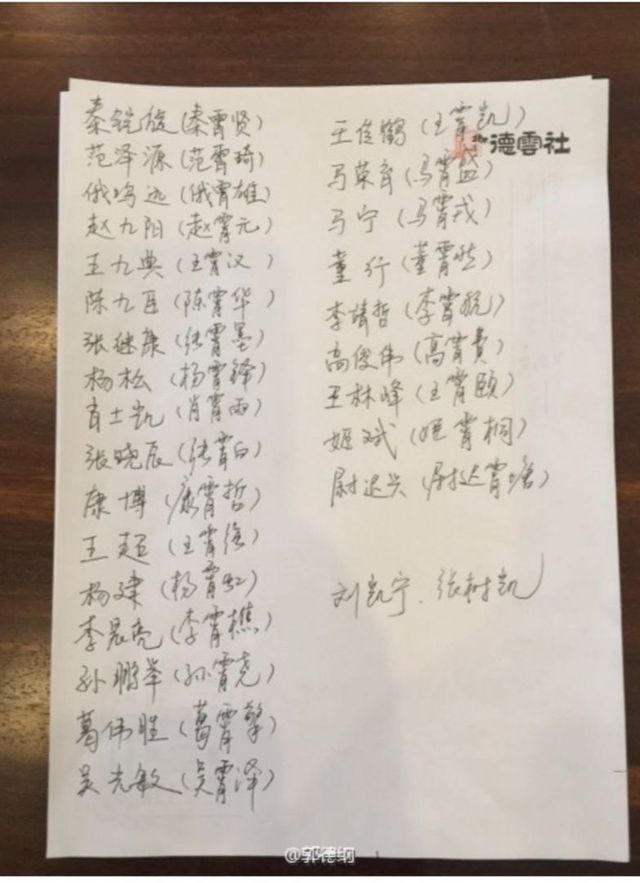 秦铠旋(秦霄贤)
范泽源(范霄琦)
俄鸣迅(俄霄雄)
赵九阳(赵霄元)
王九典(王霄汉)
陈九臣(陈霄华)
张继康(张霄墨)
杨松(杨霄锋)
肖士凯(肖霄雨)
张晓辰(张霄白)
康博(康霄哲)
王超(王霄徐)
杨建(杨霄虹)
李晨亮(李霄樵)
孙鹏举(孙霄尧)
葛伟胜(葛霄擎)
吴先敏(吴霄泽)
德雲社
王佳鹤(王霄凯)
马荣育(马霄盛)
马宁(马霄戎)
董行(董霄然)
李靖哲(李霄航)
高俊伟(高霄贵)
王林峰(王霄颐)
姬斌(姬霄桐)
尉迟兴(尉迟霄塘)
刘凯宁、张树凯
@郭德纲